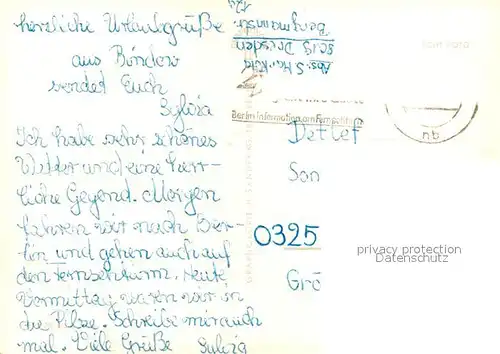 herzliche Urlaubsgrüße
aus Bindow
sendet Euch
Sylvia
Ich habe sehr schönes
Wetter und eine herr-
liche Gegend. Morgen
fahren wir nach Ber-
lin und gehen auch auf
den Fernsehturm. Heute
Vormittag waren wir in
die Pilze. Schreibe mir auch
mal. Viele Grüße Sylvia
Abs. S.
8019 Dresden
Bergmannstr.
12c
Berlin Information am Fernsehturm
nb
Detlef
Son
0325
Grö
privacy protection
Datenschutz